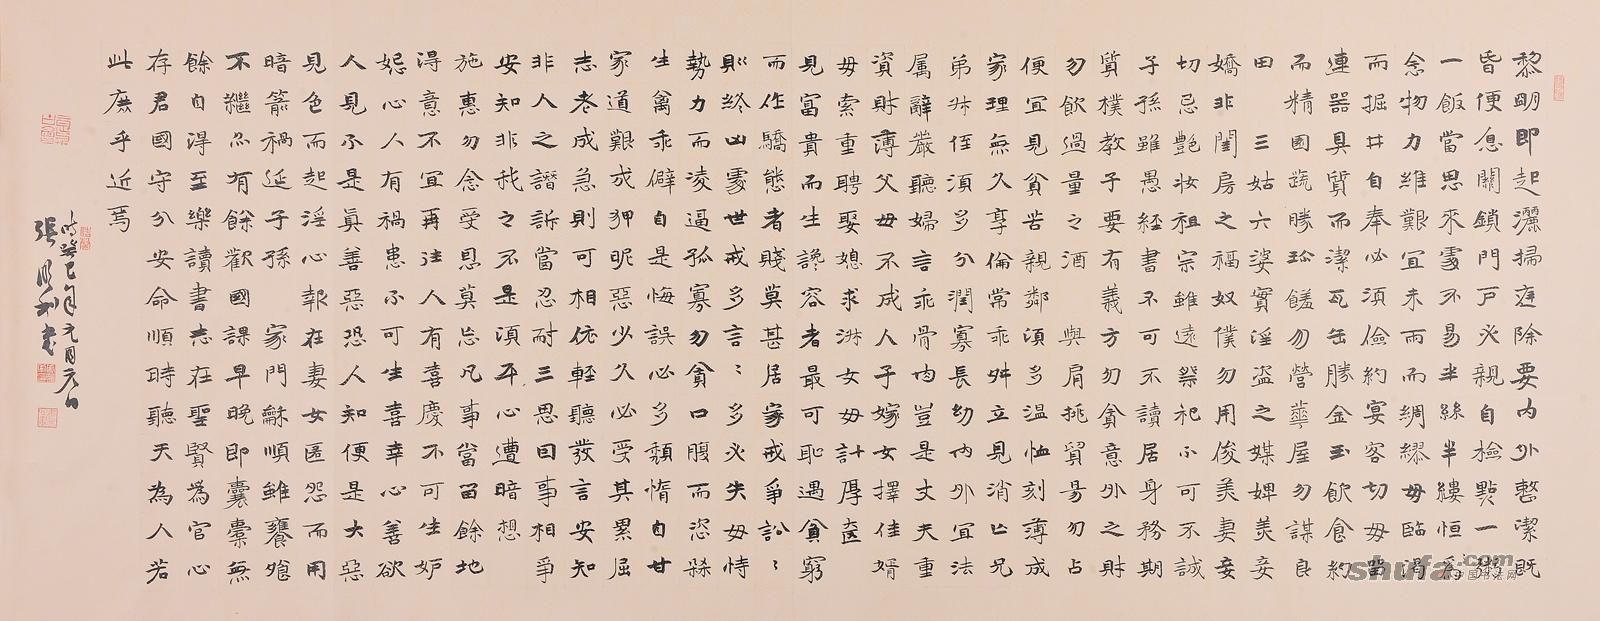 黎明即起灑掃庭除要內外整潔既
昏便息關鎖門戶必親自檢點一粥
一飯當思來處不易半絲半縷恒為
念物力維艱宜未雨而綢繆毋臨渴
而掘井自奉必須儉約宴客切毋留
連器具質而潔瓦缶勝金玉飲食約
而精園蔬勝珍饈勿營華屋勿謀良
田三姑六婆實淫盜之媒婢美妾
嬌非閨房之福奴僕勿用俊美妻妾
切忌艷妝祖宗雖遠祭祀不可不誠
子孫雖愚經書不可不讀居身務期
質樸教子要有義方勿貪意外之財
勿飲過量之酒與肩挑貿易勿占
便宜見貧苦親鄰須多溫恤刻薄成
家理無久享倫常乖舛立見消亡兄
弟叔侄須多分潤寡長幼內外宜法
屬辭嚴聽婦言乖骨肉豈是丈夫重
資財薄父母不成人子嫁女擇佳婿
毋索重聘娶媳求淑女毋計厚奩
見富貴而生讒容者最可恥遇貧窮
而作驕態者賤莫甚居家戒爭訟〻
則終凶處世戒多言〻多必失毋恃
勢力而凌逼孤寡勿貪口腹而恣殺
生禽乖僻自是悔誤必多頹惰自甘
家道艱成狎昵惡少久必受其累屈
志老成急則可相依輕聽發言安知
非人之譖訴當忍耐三思因事相爭
安知非我之不是須平心遭暗想
施惠勿念受恩莫忘凡事當留餘地
得意不宜再往人有喜慶不可生妒
忌心人有禍患不可生喜幸心善欲
人見不是真善惡恐人知便是大惡
見色而起淫心報在妻女匿怨而用
暗箭禍延子孫 家門龢順雖饔飧
不繼亦有餘歡國課早晚即囊橐無
餘自得至樂讀書志在聖賢為官心
存君國守分安命順時聽天為人若
此庶乎近焉
時癸巳年元月六日
張順利書
shufa.com
中国书法网